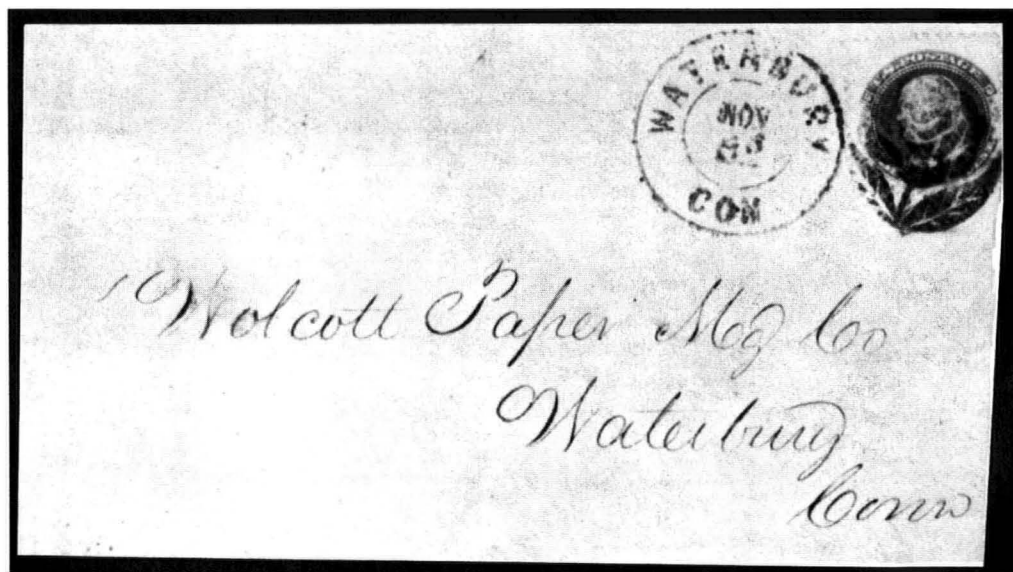 WATERBURY
NOV
CON
Wolcott Paper Mfg Co
Waterbury
Conn